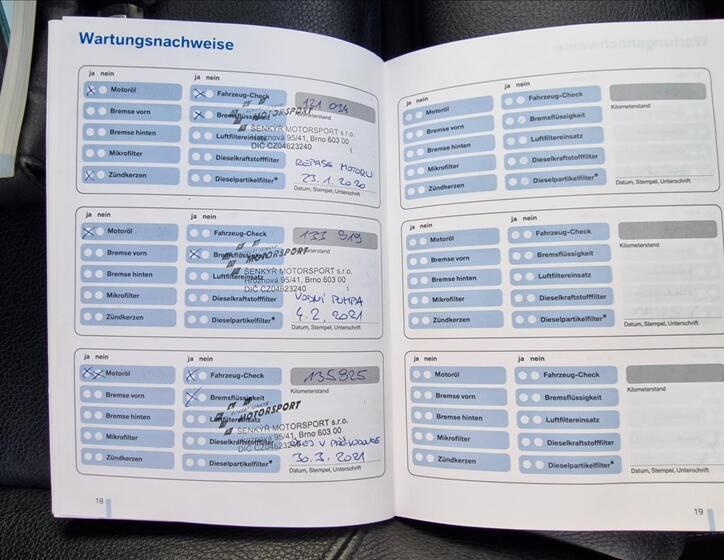 Wartungsnachweise
ja nein
ja nein
Motoröl
Fahrzeug-Check
131 034
Bremse vorn
Bremsflüssigkeit
Kilometerstand
MOTORSPORT
Bremse hinten
Luftfiltereinsatz
ŠENKÝŘ MOTORSPORT s.r.o.
Hrozňová 95/41, Brno 603 00
DIČ CZ04623240
Mikrofilter
Dieselkraftstofffilter
REPASE MOTORU
Zündkerzen
Dieselpartikelfilter*
23.1.2020
Datum, Stempel, Unterschrift
ja nein
ja nein
Motoröl
Fahrzeug-Check
133 919
Bremse vorn
Bremsflüssigkeit
MOTORSPORT
Bremse hinten
Luftfiltereinsatz
ŠENKÝŘ MOTORSPORT s.r.o.
Hrozňová 95/41, Brno 603 00
DIČ CZ04623240
Mikrofilter
Dieselkraftstofffilter
VODNÍ PUMPA
Zündkerzen
Dieselpartikelfilter*
4.2.2021
Datum, Stempel, Unterschrift
ja nein
ja nein
Motoröl
Fahrzeug-Check
135825
Bremse vorn
Bremsflüssigkeit
Kilometerstand
MOTORSPORT
Bremse hinten
Luftfiltereinsatz
ŠENKÝŘ MOTORSPORT s.r.o.
Hrozňová 95/41, Brno 603 00
DIČ CZ04623240
Mikrofilter
Dieselkraftstofffilter
V PŘEVODOVCE
Zündkerzen
Dieselpartikelfilter*
30.3.2021
Datum, Stempel, Unterschrift
18
ja nein
ja nein
Motoröl
Fahrzeug-Check
Bremse vorn
Bremsflüssigkeit
Kilometerstand
Bremse hinten
Luftfiltereinsatz
Mikrofilter
Dieselkraftstofffilter
Zündkerzen
Dieselpartikelfilter*
Datum, Stempel, Unterschrift
ja nein
ja nein
Motoröl
Fahrzeug-Check
Bremse vorn
Bremsflüssigkeit
Kilometerstand
Bremse hinten
Luftfiltereinsatz
Mikrofilter
Dieselkraftstofffilter
Zündkerzen
Dieselpartikelfilter*
Datum, Stempel, Unterschrift
ja nein
ja nein
Motoröl
Fahrzeug-Check
Bremse vorn
Bremsflüssigkeit
Kilometerstand
Bremse hinten
Luftfiltereinsatz
Mikrofilter
Dieselkraftstofffilter
Zündkerzen
Dieselpartikelfilter*
Datum, Stempel, Unterschrift
19